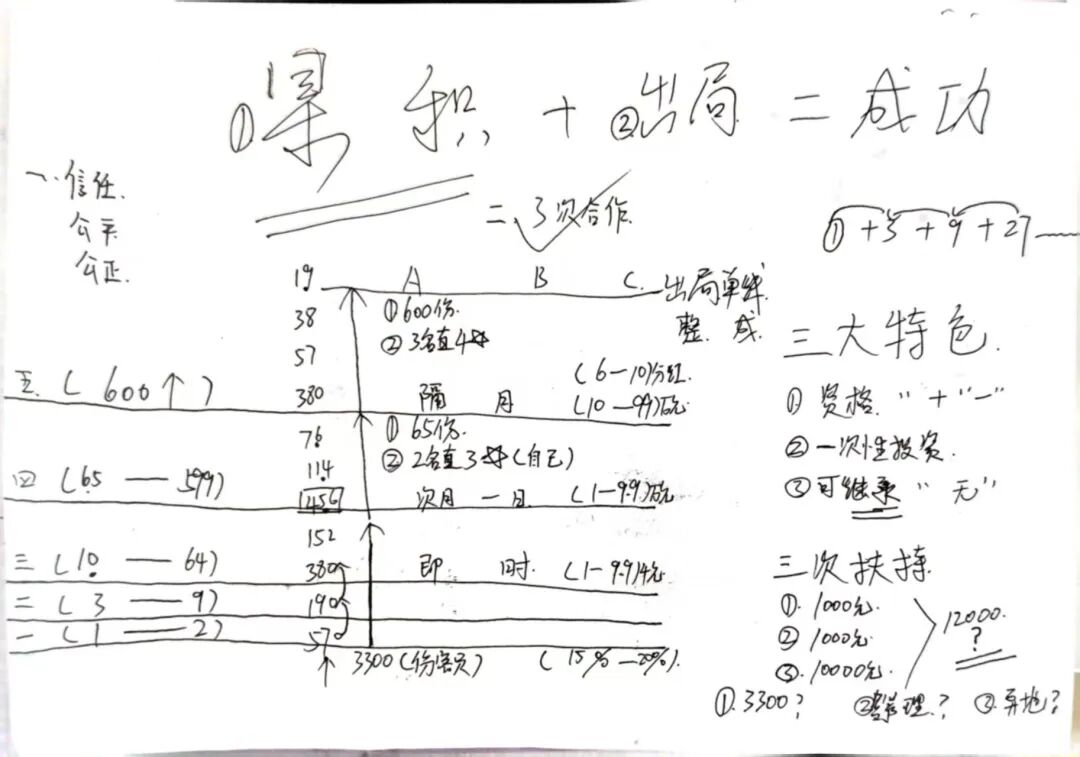 ①累积 + ②出局 = 成功
一、信任.
公平
公正.
= 3次合作.
①+3+9+27
19 A B C. 出局单线
38 ①600份. 整 成.
57 ②3名直4
(6-10)分红.
五. ( 600↑ ) 380 隔 月 (10-99)
76 ①65份.
114 ②2名直3 (自己)
四 (65 — 599) 456 次月 一日 (1-9.9)
152
三 (10 — 64) 380 即 时. (1-9.9)4元
二 (3 — 9) 190
一 (1 — 2) 570
↑ 3300 ( ) (15%-20%).
三大特色.
① 资格. "+" "-"
② 一次性投资.
③ 可继承 "无"
三次扶持
①. 1000元.
② 1000元
③. 10000元.
12000.
?
①. 3300? ② 理.? ③. 异地?